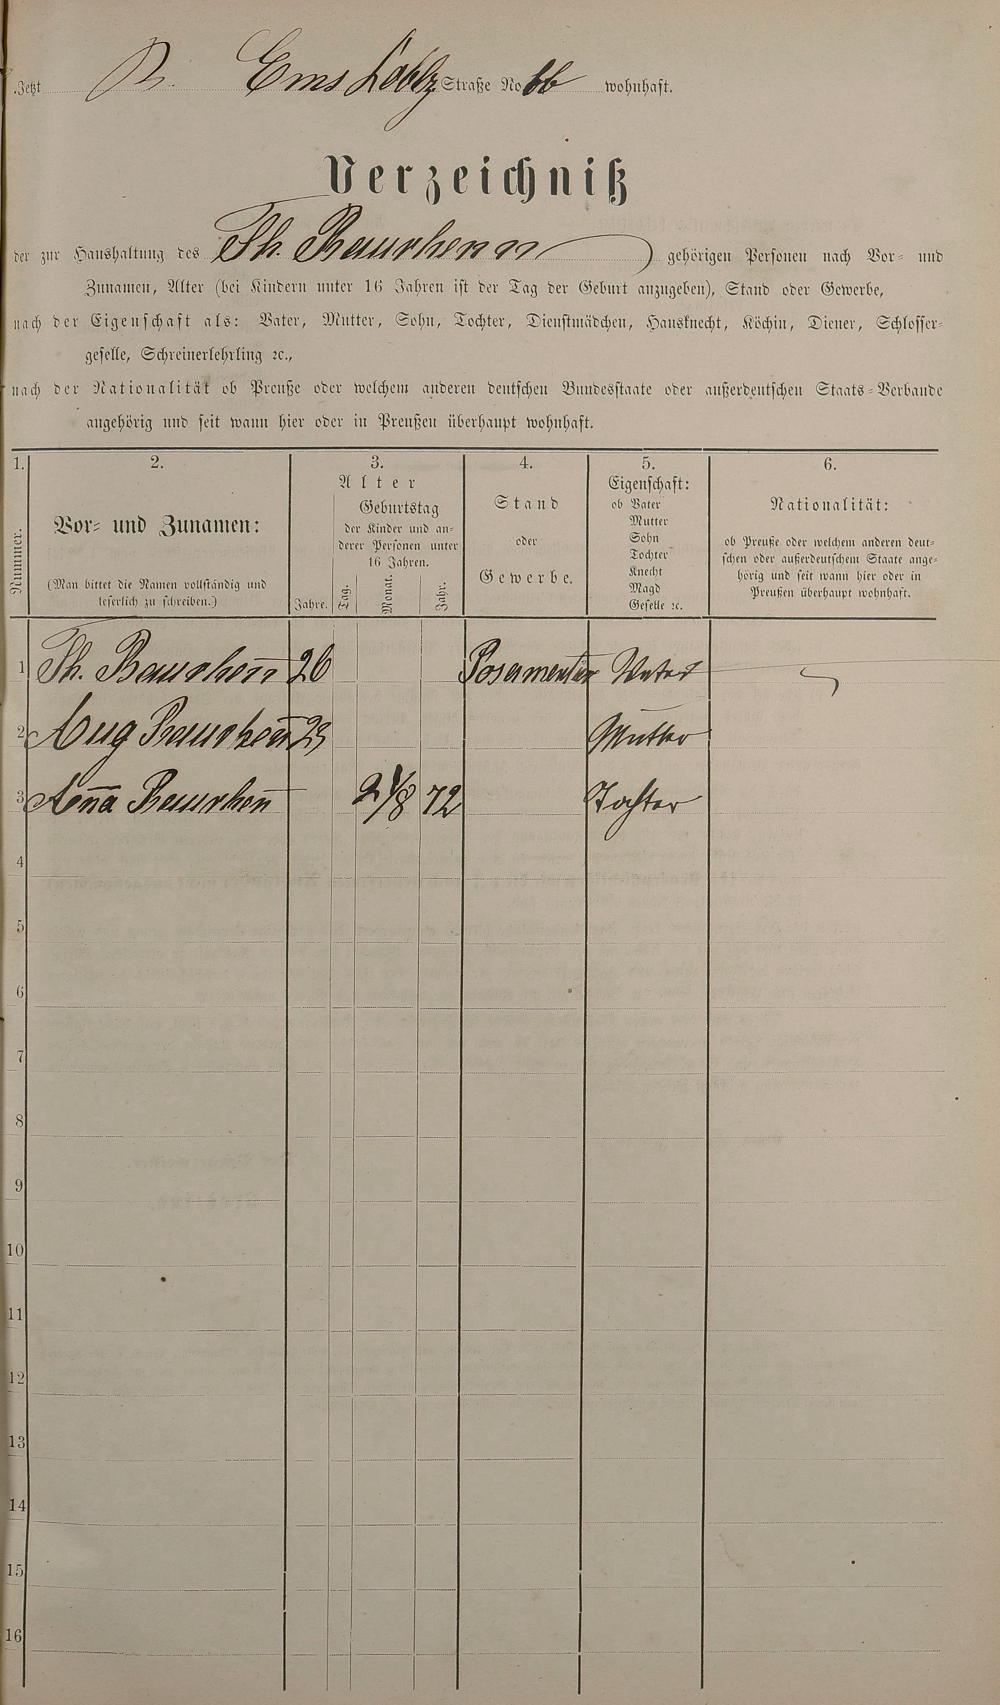 Jetzt B. Ems Coblz Straße No 66 wohnhaft.
Verzeichniß
der zur Haushaltung des Th. Baurhenn gehörigen Personen nach Vor- und
Zunamen, Alter (bei Kindern unter 16 Jahren ist der Tag der Geburt anzugeben), Stand oder Gewerbe,
nach der Eigenschaft als: Vater, Mutter, Sohn, Tochter, Dienstmädchen, Hausknecht, Köchin, Diener, Schlosser-
geselle, Schreinerlehrling ꝛc.,
nach der Nationalität ob Preuße oder welchem anderen deutschen Bundesstaate oder außerdeutschen Staats-Verbande
angehörig und seit wann hier oder in Preußen überhaupt wohnhaft.
1. 2. 3. 4. 5. 6.
Nummer.
Vor- und Zunamen:
(Man bittet die Namen vollständig und
leserlich zu schreiben.)
Alter
Jahre.
Geburtstag
der Kinder und an-
derer Personen unter
16 Jahren.
Tag. Monat. Jahr.
Stand
oder
Gewerbe.
Eigenschaft:
ob Vater
Mutter
Sohn
Tochter
Knecht
Magd
Geselle ꝛc.
Nationalität:
ob Preuße oder welchem anderen deut-
schen oder außerdeutschem Staate ange-
hörig und seit wann hier oder in
Preußen überhaupt wohnhaft.
1 Th. Baurhen̄ 26 Posamentier Vater
2 Aug Baurhen̄ 23 Mutter
3 An̄a Baurhen̄ 21/8 72 Tochter
4
5
6
7
8
9
10
11
12
13
14
15
16